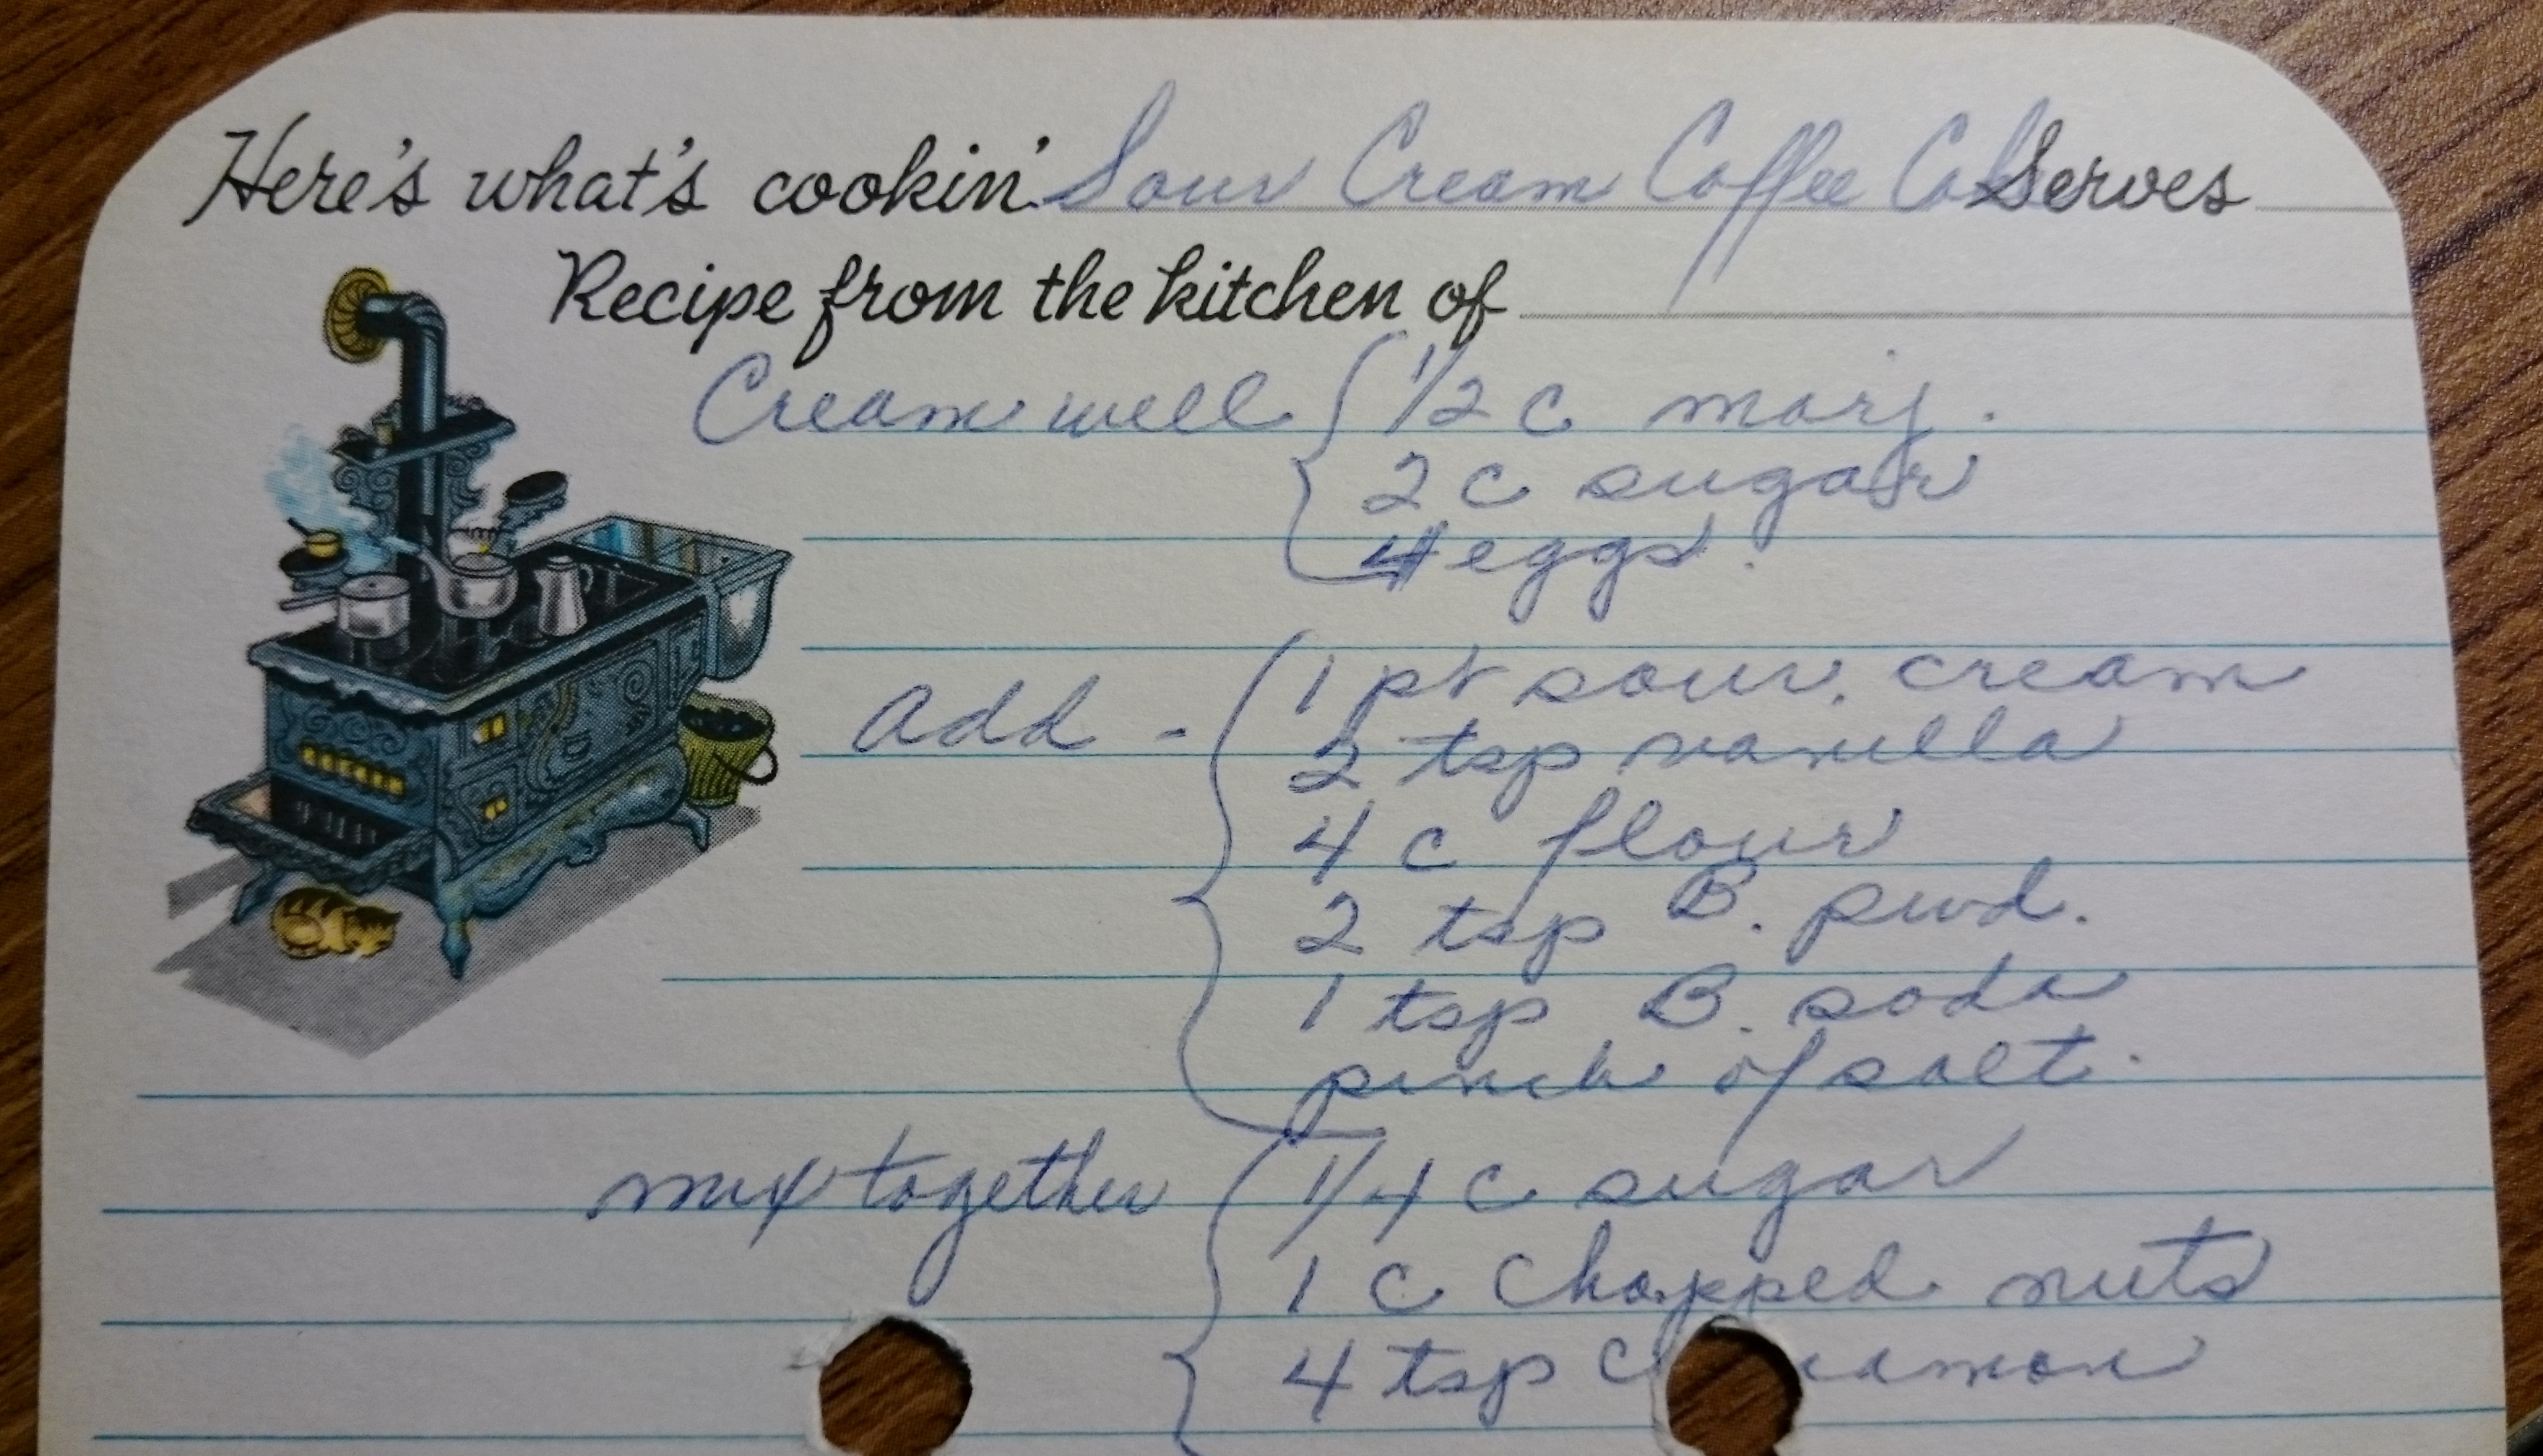 Here's what's cookin' Sour Cream Coffee Cake Serves
Recipe from the kitchen of
Cream well { 1/2 c marj.
2 c sugar
4 eggs.
add - { 1 pt sour cream
2 tsp vanilla
4 c flour
2 tsp B. pwd.
1 tsp B. soda
pinch of salt.
mix together { 1/4 c sugar
1 c chopped nuts
4 tsp